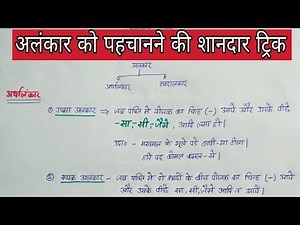 अलंकार को पहचानने की शानदार ट्रिक
अलंकार
अर्थालंकार शब्दालंकार
अर्थालंकार
① उपमा अलंकार → जब पंक्ति में योजक का चिन्ह (-) आये और उसके पीछे
- सा, सी, जैसे, आदि लगा हो।
उदा० -
हरि पद कोमल कमल-से।
② रूपक अलंकार - जब पंक्ति में शब्दों के बीच योजक का चिन्ह (-) आये
और उसके पीछे सा, सी, जैसे आदि न आये।